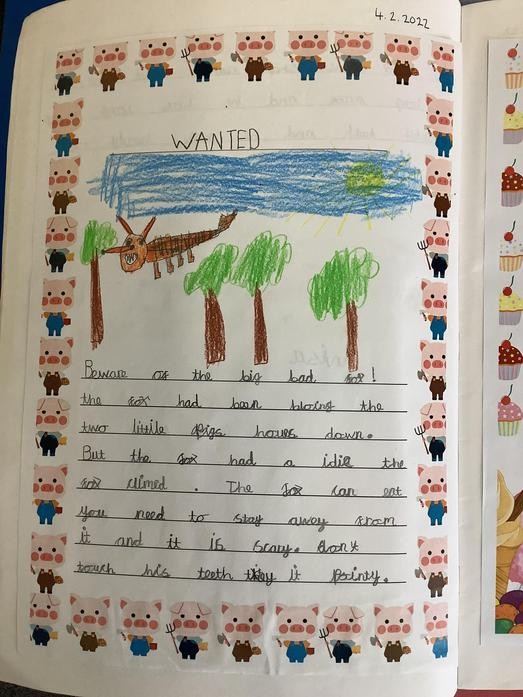 4.2.2022
WANTED
Beware of the big bad fox!
the fox had been blowing the
two little pigs houes down.
But the fox had a idie the
fox climed. The fox can eat
you need to stay away from
it and it is scary. dont
touch his teeth they it Pointy.